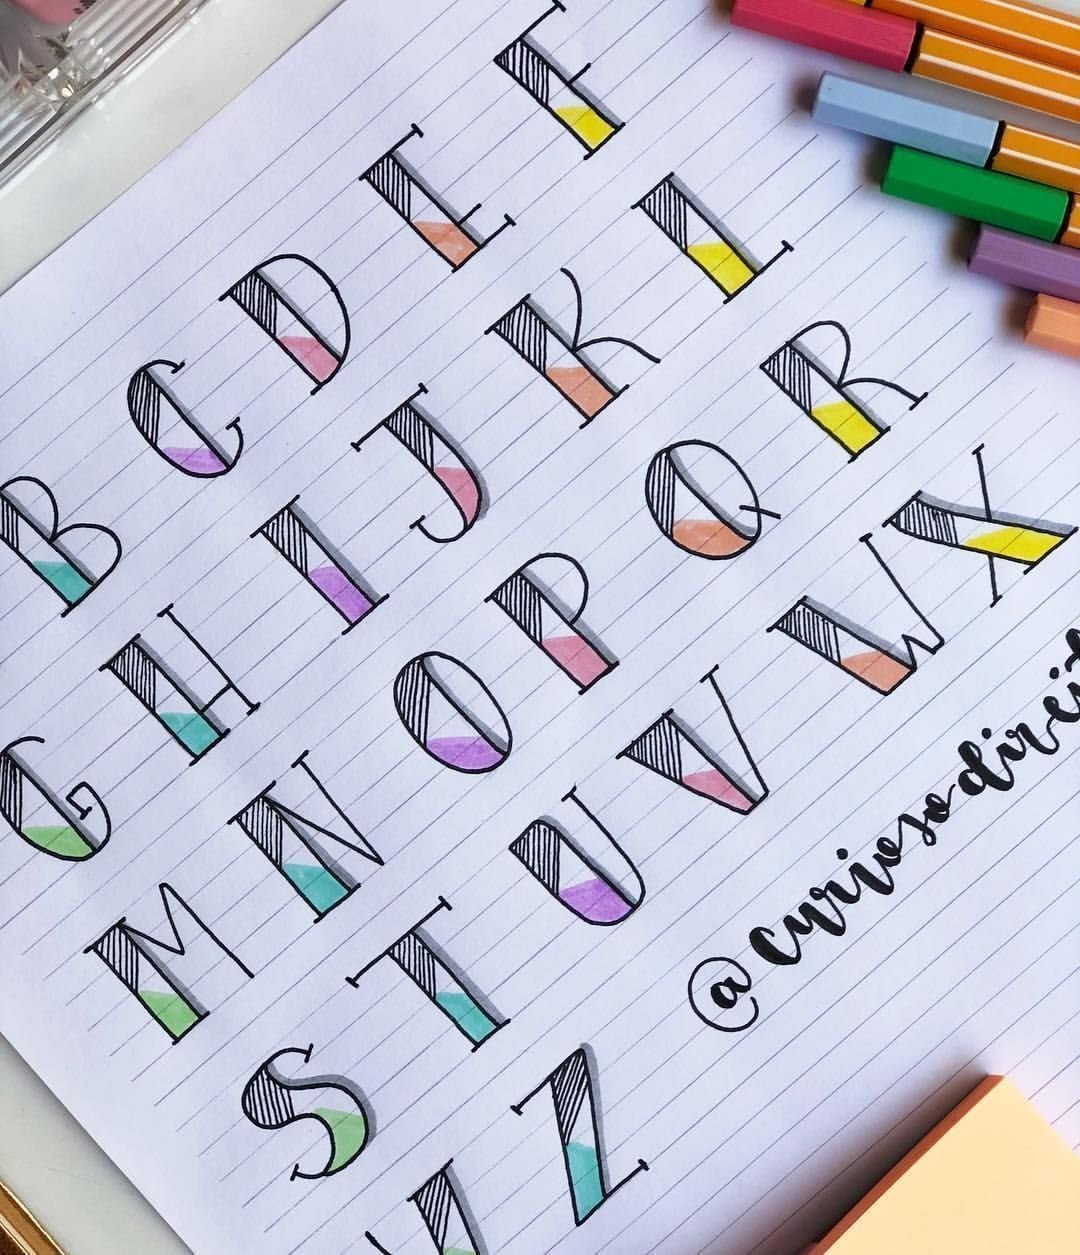 B C D E F
G H I J K L
M N O P Q R
S T U V W X
Y Z
@curiosodireit